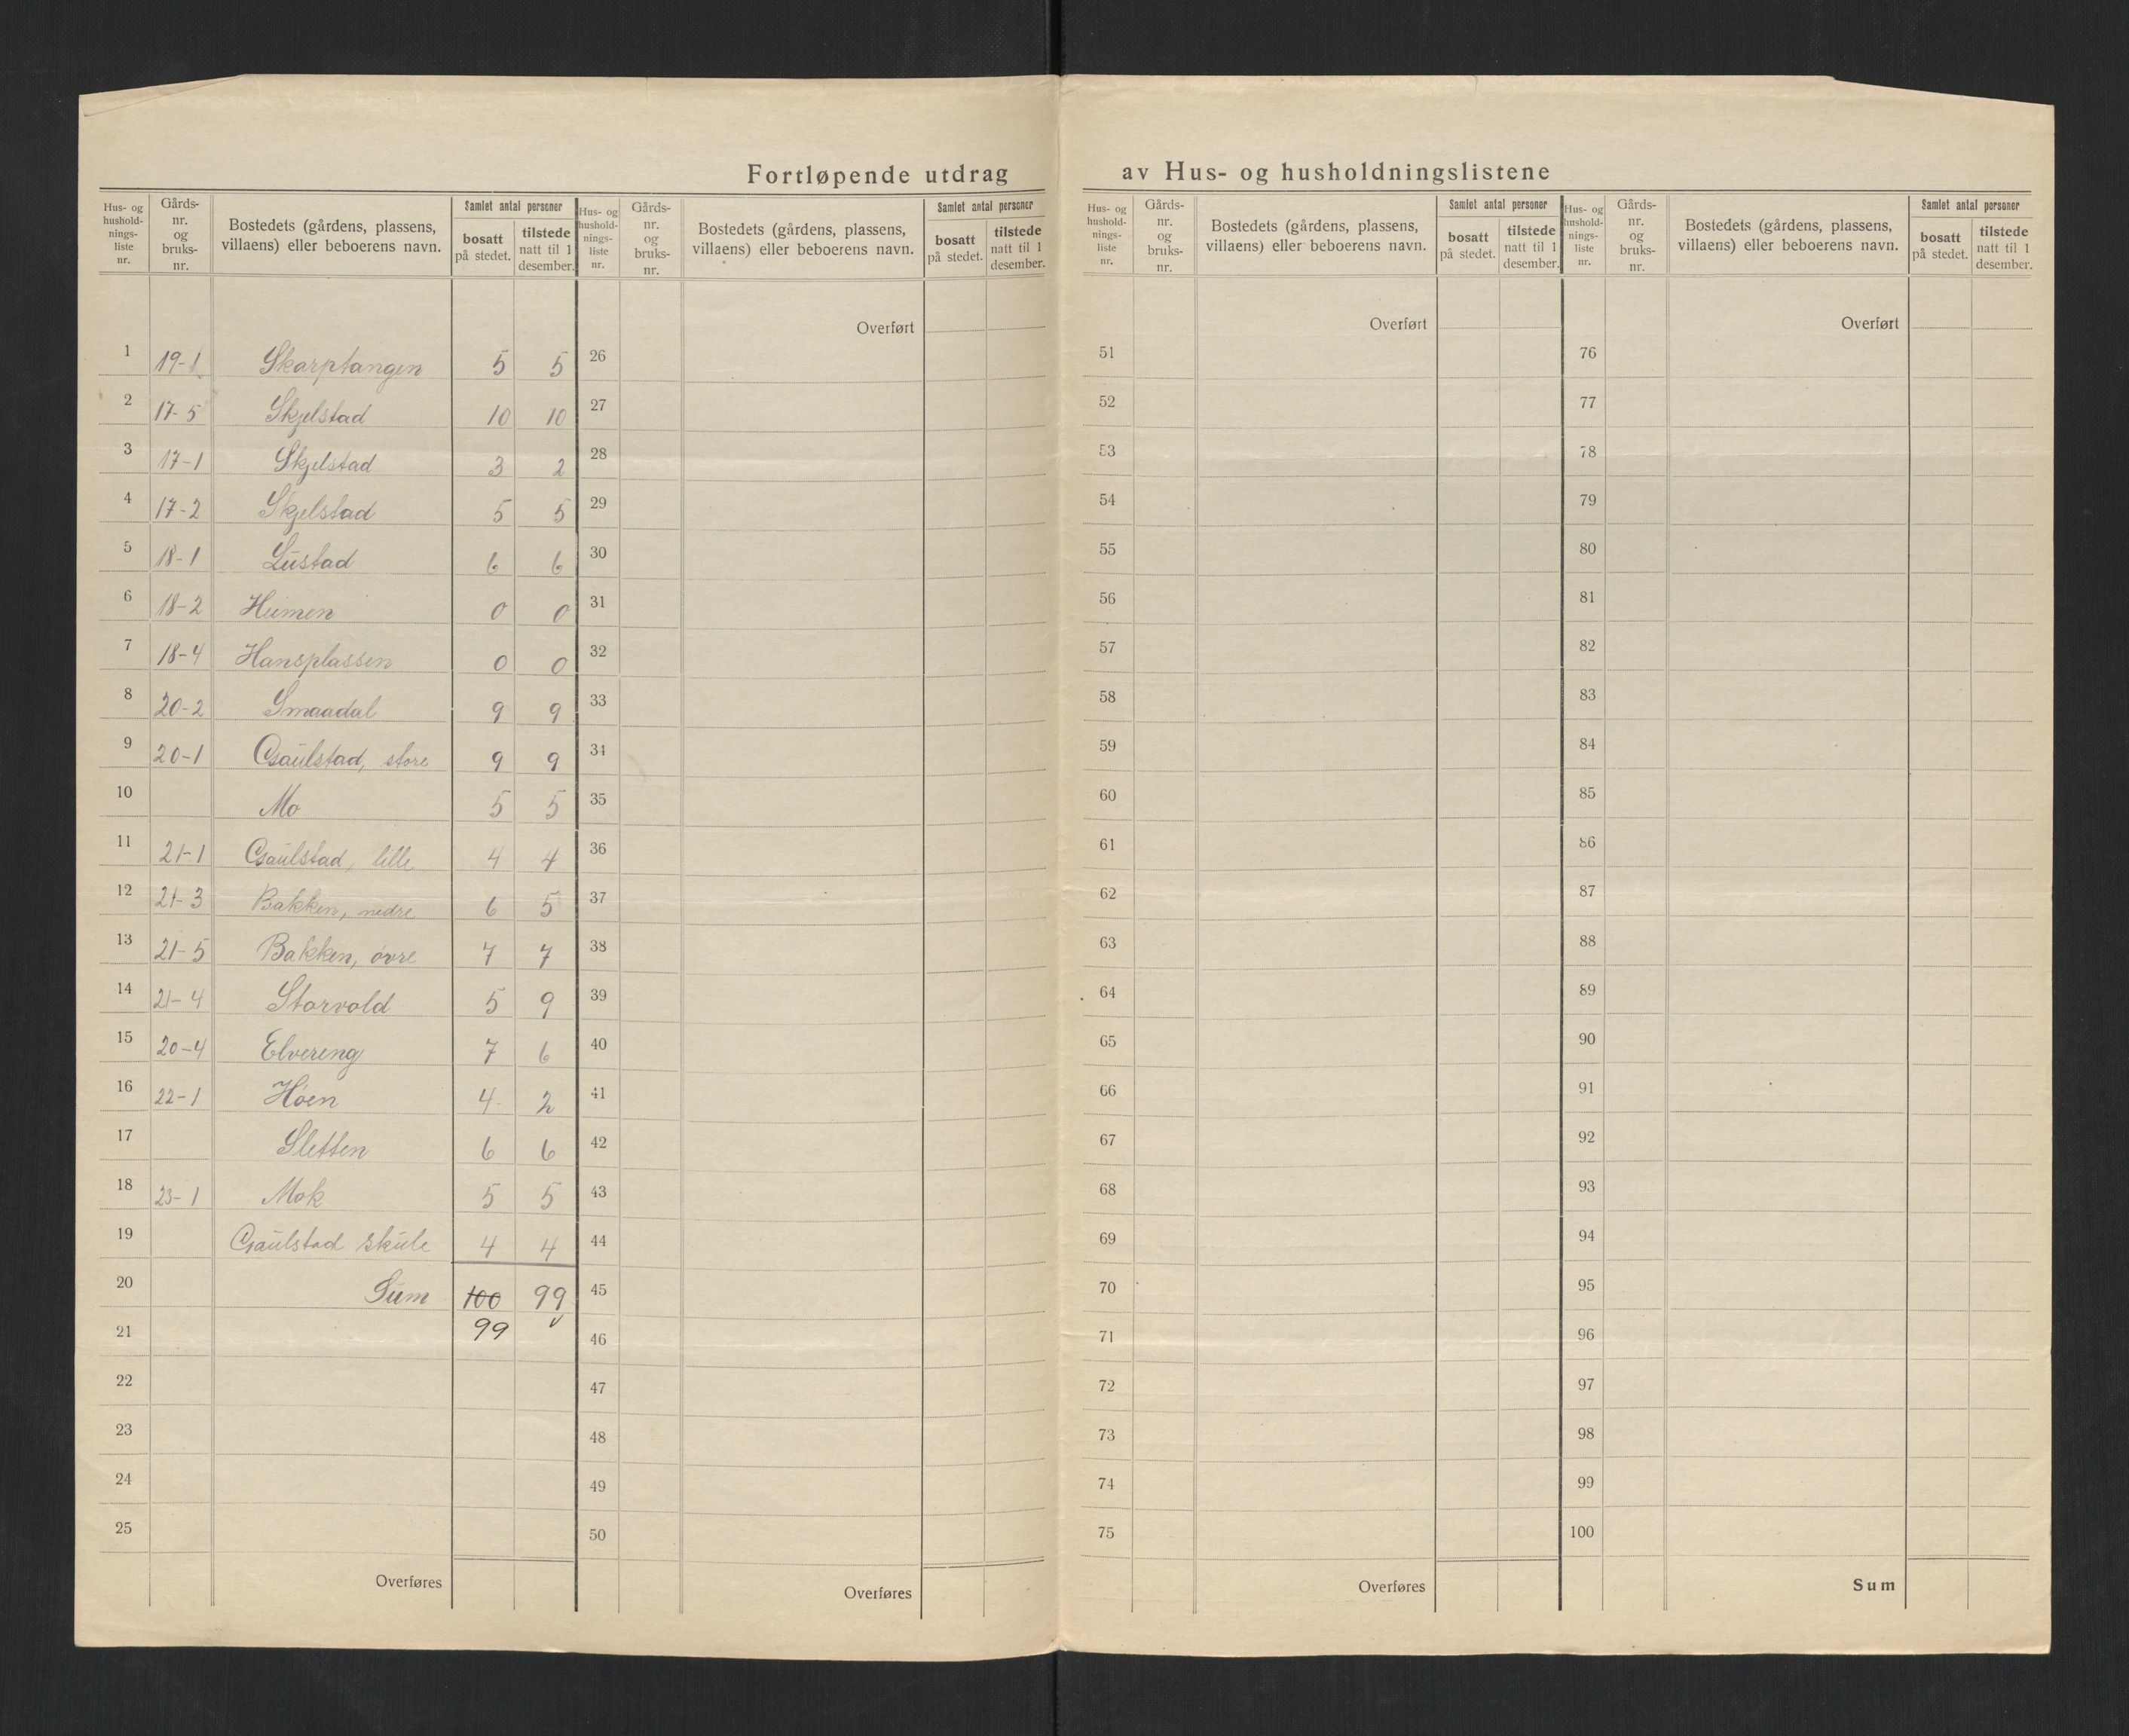 Fortløpende utdrag av Hus- og husholdningslistene
Hus- og husholdningsliste nr. | Gårds- nr. og bruks- nr. | Bostedets (gårdens, plassens, villaens) eller beboerens navn. | Samlet antal personer | bosatt på stedet. | tilstede natt til 1 desember.
1 19-1 Skarptangen 5 5
2 17-5 Skjelstad 10 10
3 17-1 Skjelstad 3 2
4 17-2 Skjelstad 5 5
5 18-1 Lustad 6 6
6 18-2 Heimen 0 0
7 18-4 Hansplassen 0 0
8 20-2 Smaadal 9 9
9 20-1 Gaulstad, store 9 9
10 Mo 5 5
11 21-1 Gaulstad, lille 4 4
12 21-3 Bakken, nedre 6 5
13 21-5 Bakken, øvre 7 7
14 21-4 Storvold 5 9
15 20-4 Elvereng 7 6
16 22-1 Høen 4 2
17 Sletten 6 6
18 23-1 Mok 5 5
19 Gaulstad skule 4 4
20 Sum 100 99
21 99 v
22
23
24
25
Overføres
Hus- og husholdningsliste nr. | Gårds- nr. og bruks- nr. | Bostedets (gårdens, plassens, villaens) eller beboerens navn. | Samlet antal personer | bosatt på stedet. | tilstede natt til 1 desember.
Overført
26
27
28
29
30
31
32
33
34
35
36
37
38
39
40
41
42
43
44
45
46
47
48
49
50
Overføres
Hus- og husholdningsliste nr. | Gårds- nr. og bruks- nr. | Bostedets (gårdens, plassens, villaens) eller beboerens navn. | Samlet antal personer | bosatt på stedet. | tilstede natt til 1 desember.
Overført
51
52
53
54
55
56
57
58
59
60
61
62
63
64
65
66
67
68
69
70
71
72
73
74
75
Overføres
Hus- og husholdningsliste nr. | Gårds- nr. og bruks- nr. | Bostedets (gårdens, plassens, villaens) eller beboerens navn. | Samlet antal personer | bosatt på stedet. | tilstede natt til 1 desember.
Overført
76
77
78
79
80
81
82
83
84
85
86
87
88
89
90
91
92
93
94
95
96
97
98
99
100
Sum